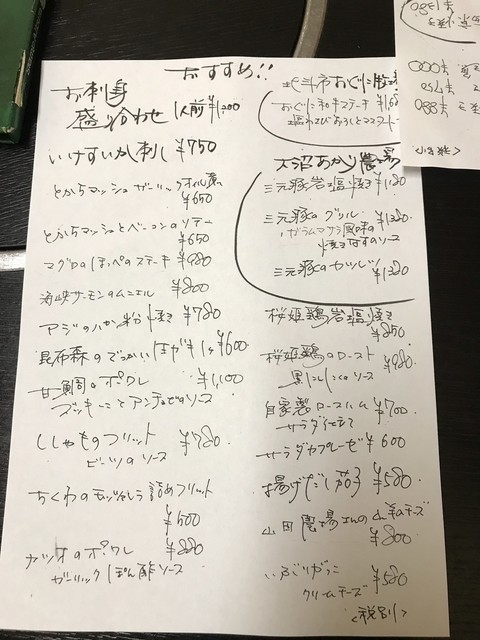 おすすめ!!
お刺身
盛り合わせ 1人前 ¥1,200
いけすいか刺し ¥750
とかちマッシュ ガーリックオイル
¥650
とかちマッシュとベーコンのソテー
¥650
マグロのほっぺのステーキ ¥980
海峡サーモンのムニエル ¥800
アジのハーブ粉焼き ¥780
昆布森のでっかい ¥600
甘鯛のポワレ ¥1,100
ズッキーニとアンチョビのソース
ししゃものフリット ¥780
ビーツのソース
ちくわのモッツァレラ詰めフリット
¥500
カツオのポワレ ¥880
ガーリックぽん酢ソース
北斗市おぐに
おぐに和牛ステーキ
塩わさび おろしと
大沼あかり農場
三元豚岩塩焼き
三元豚のグリル ¥1380
ガラムマサラ風味の
焼きなすのソース
三元豚のカツレツ ¥1380
桜姫鶏岩塩焼き
¥850
桜姫鶏のロースト ¥980
黒にんにくのソース
自家製ロースハム ¥700
サラダ仕立て
サラダカプレーゼ ¥600
揚げだし茄子 ¥580
山田農場さんの山羊のチーズ
¥800
いぶりがっこ
クリームチーズ ¥580
<税別>
¥1380
¥1000
¥750
¥880